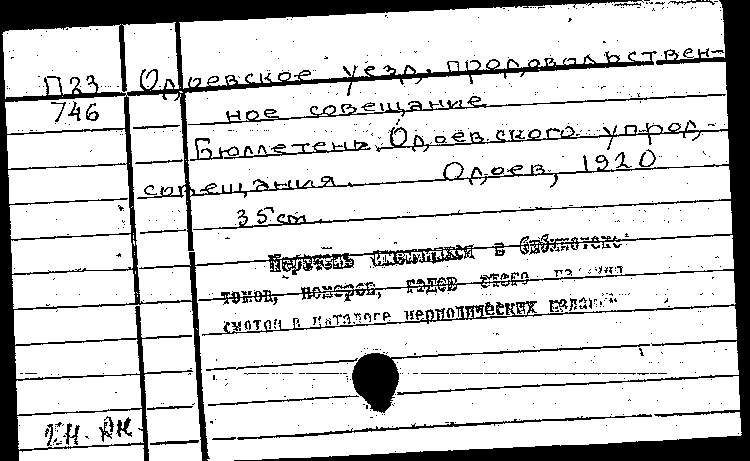 П23 Одоевское уезд. продовольствен-
746 ное совещание
Бюллетень Одоевского упрод-
совещания. Одоев, 1920
35 см.
Перечень имеющихся в библиотеке
томов, номеров, годов этого
смотри в каталоге периодических издан